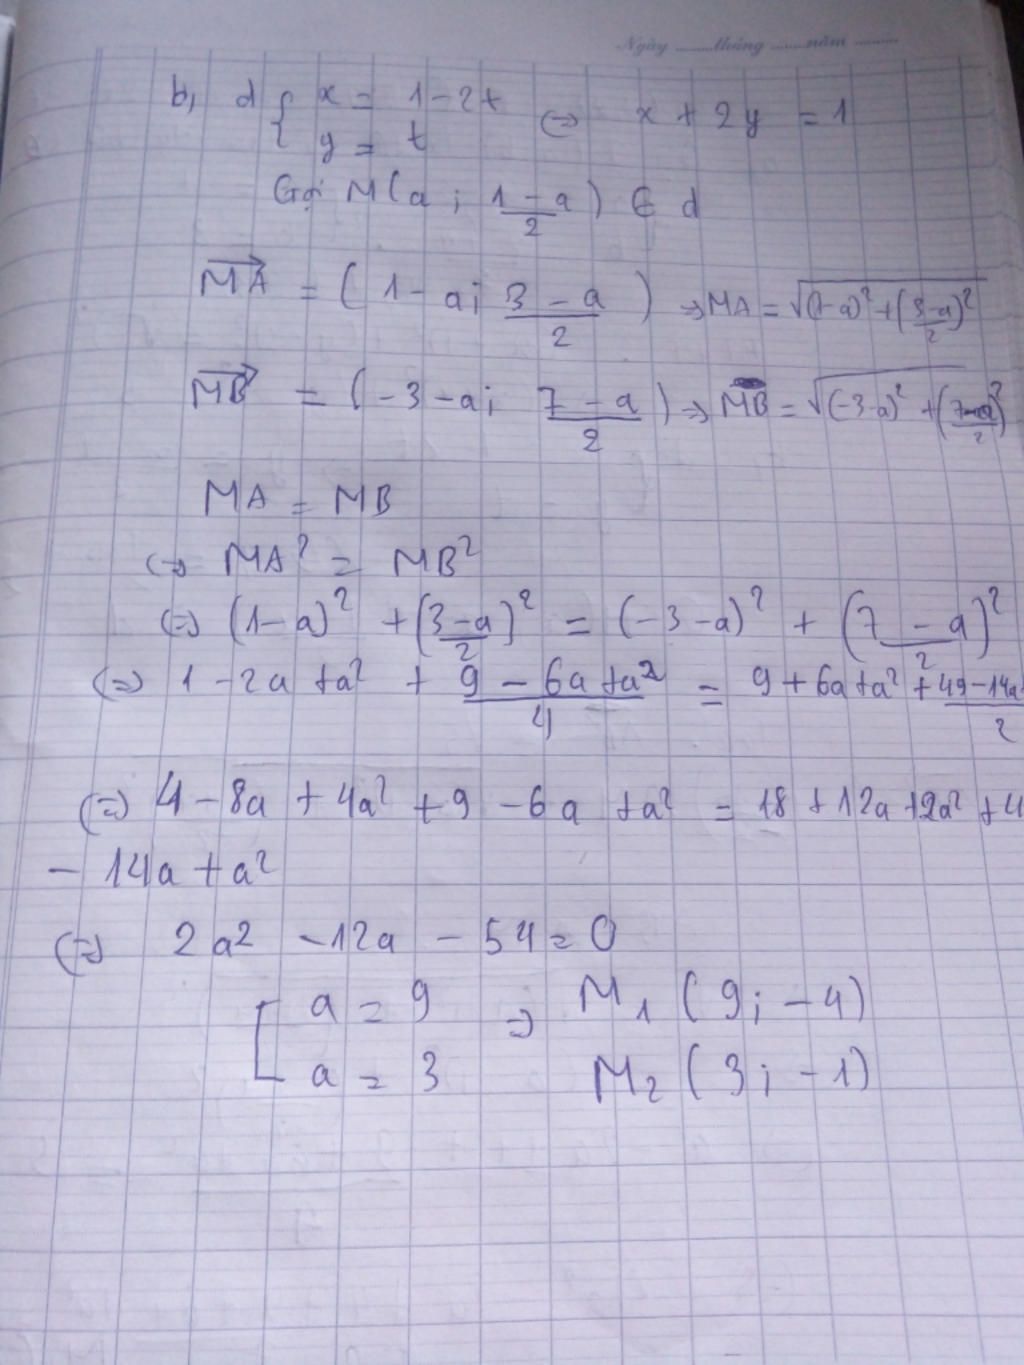 Ngày ........tháng .......năm .........
b, d { x = 1 - 2t
y = t
<=> x + 2y = 1
Gọi M(a ; (1 - a)/2) ∈ d
MA→ = (1 - a; (3 - a)/2) => MA = √((1-a)² + ((3-a)/2)²)
MB→ = (-3 - a; (7 - a)/2) => MB = √((-3-a)² + ((7-a)/2)²)
MA = MB
<=> MA² = MB²
<=> (1-a)² + ((3-a)/2)² = (-3-a)² + ((7-a)/2)²
<=> 1 - 2a + a² + (9 - 6a + a²)/4 = 9 + 6a + a² + (49 - 14a)/2
<=> 4 - 8a + 4a² + 9 - 6a + a² = 18 + 12a + 2a² + 4
- 14a + a²
<=> 2a² - 12a - 54 = 0
[ a = 9 => M₁ (9; -4)
a = 3 M₂ (3; -1)